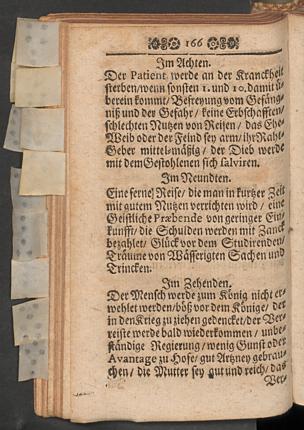 166
Im Achten.
Der Patient werde an der Kranckheit
sterben/wenn sonsten 1. und 10. damit ü-
berein kommt/Befreyung vom Gefäng-
niß und der Gefahr/ keine Erbschafften/
schlechten Nutzen von Reisen / das Ehe-
Weib oder der Feind sey arm/ ihr Raht-
Geber mittelmäßig/ der Dieb werde
mit dem Gestohlenen sich salviren.
Im Neundten.
Eine ferne Reise/ die man in kurtzer Zeit
mit gutem Nutzen verrichten wird / eine
Geistliche Præbende von geringer Ein-
kunfft/ die Schulden werden mit Zanck
bezahlet/ Glück vor dem Studirenden/
Träume von Wässerigten Sachen und
Trincken.
Im Zehenden.
Der Mensch werde zum König nicht er-
wehlet werden/böß vor dem Könige/ der
in den Krieg zu ziehen gedencket/ der Ver-
reiste werde bald wiederkommen / unbe-
ständige Regierung/ wenig Gunst oder
Avantage zu Hofe/ gut Artzney gebrau-
chen / die Mutter sey gut und reich/ das
Ver-